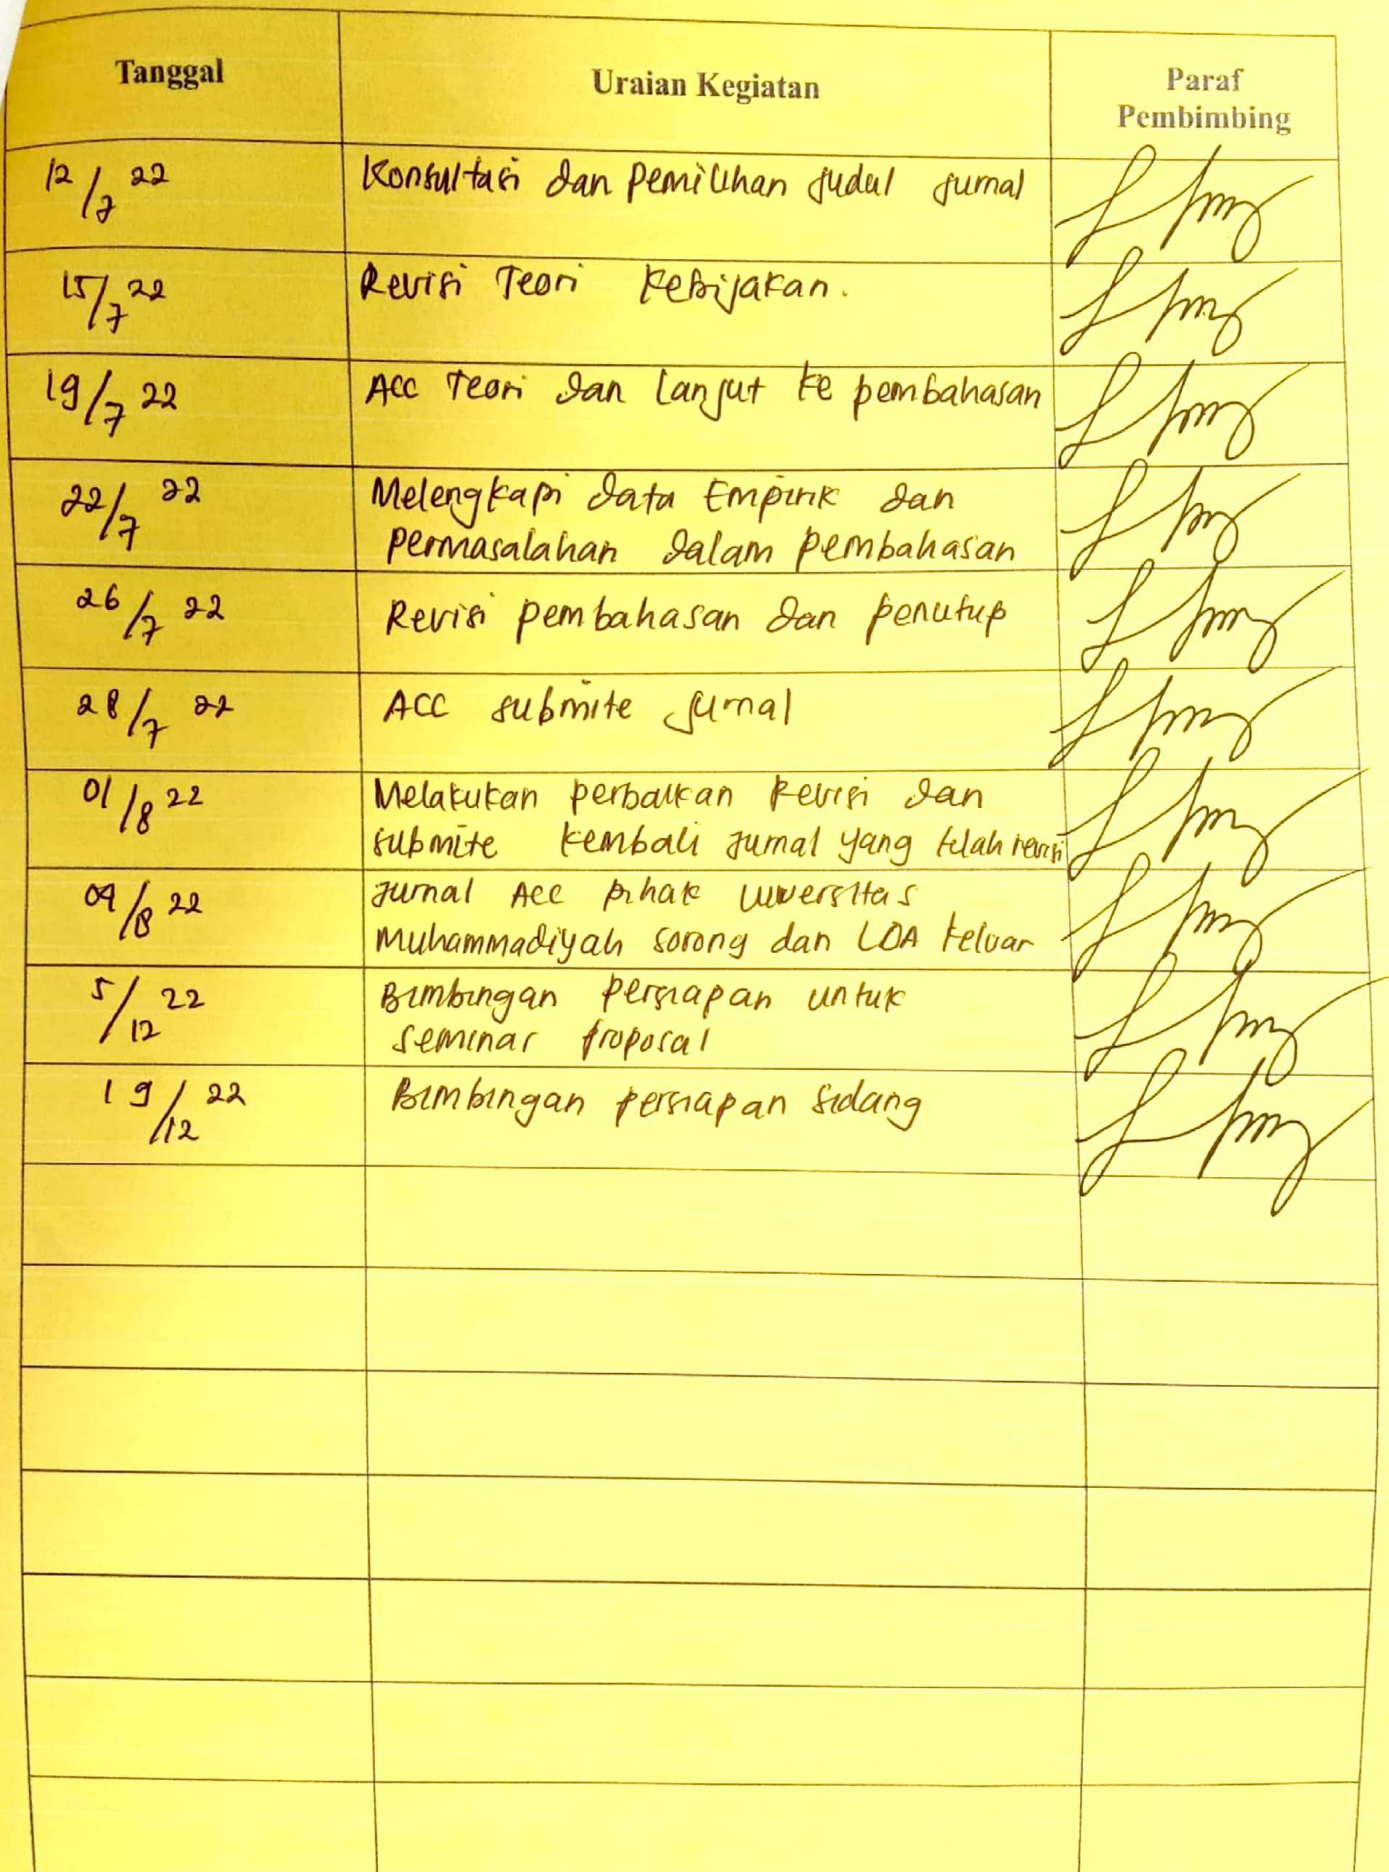 Tanggal
Uraian Kegiatan
Paraf
Pembimbing
12/7 22
Konsultasi dan pemilihan judul jurnal
15/7 22
Revisi Teori Kebijakan.
19/7 22
Acc Teori dan lanjut ke pembahasan
22/7 22
Melengkapi data Empirik dan
permasalahan dalam pembahasan
26/7 22
Revisi pembahasan dan penutup
28/7 22
ACC submite jurnal
01/8 22
Melakukan perbaikan Revisi dan
submite kembali jurnal yang telah revisi
09/8 22
Jurnal Acc pihak Universitas
Muhammadiyah sorong dan LOA keluar
5/12 22
Bimbingan persiapan untuk
seminar proposal
19/12 22
Bimbingan persiapan sidang